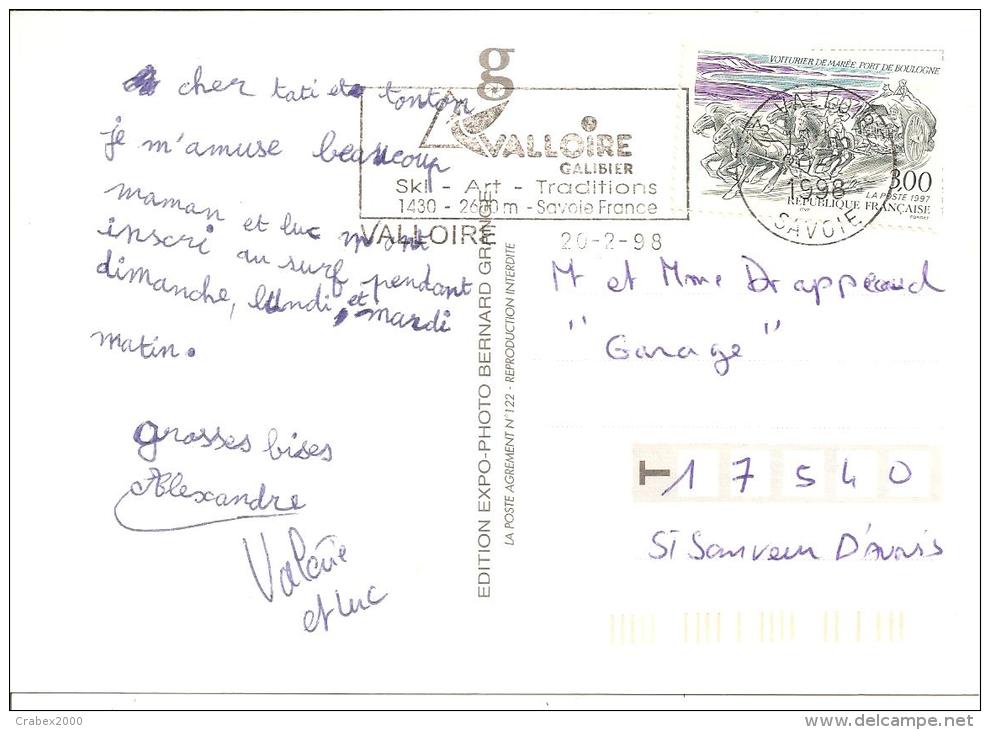 cher tati et tonton
je m'amuse beaucoup
maman et luc m'ont
inscri au surf pendant
dimanche, lundi et mardi
matin.
grosses bises
Alexandre
Valérie
et Luc
g
VALLOIRE
GALIBIER
Ski - Art - Traditions
1430 - 2600 m - Savoie France
VALLOIRE
20-2-98
VOITURIER DE MARÉE, PORT DE BOULOGNE
3,00
LA POSTE 1997
RÉPUBLIQUE FRANÇAISE
VALLOIRE
1998
SAVOIE
EDITION EXPO-PHOTO BERNARD GRANGE
LA POSTE AGREMENT N° 122 - REPRODUCTION INTERDITE
Mr et Mme Drappeaud
"Garage"
T 17540
St Sauveur D'Aunis
Crabex2000
www.delcampe.net